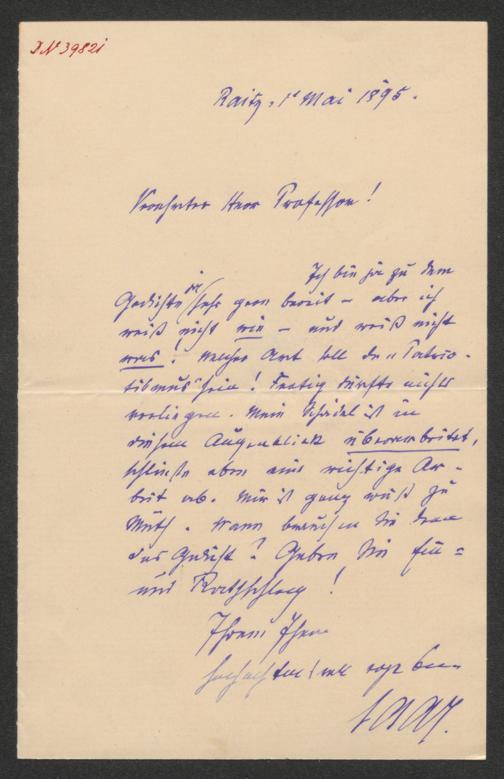 IN 39821
Raitz, 1t Mai 1895.
Verehrter Herr Professor!
Ich bin ja zu dem
Gedichte sehr gern bereit – aber ich
weiß nicht wie – und weiß nicht
was! Welcher Art soll der „Patrio-
tismus" sein! Fertig dürfte nichts
vorliegen. Mein Schädel ist in
diesem Augenblick überarbeitet,
schließe eben eine wichtige Ar-
beit ab. Mir ist ganz wüst zu
Muth. Wann brauchen Sie denn
das Gedicht? Geben Sie Fin-
und Rathschlag!
Ihrem Ihnen
hochachtungsvoll ergebenen
Saar.